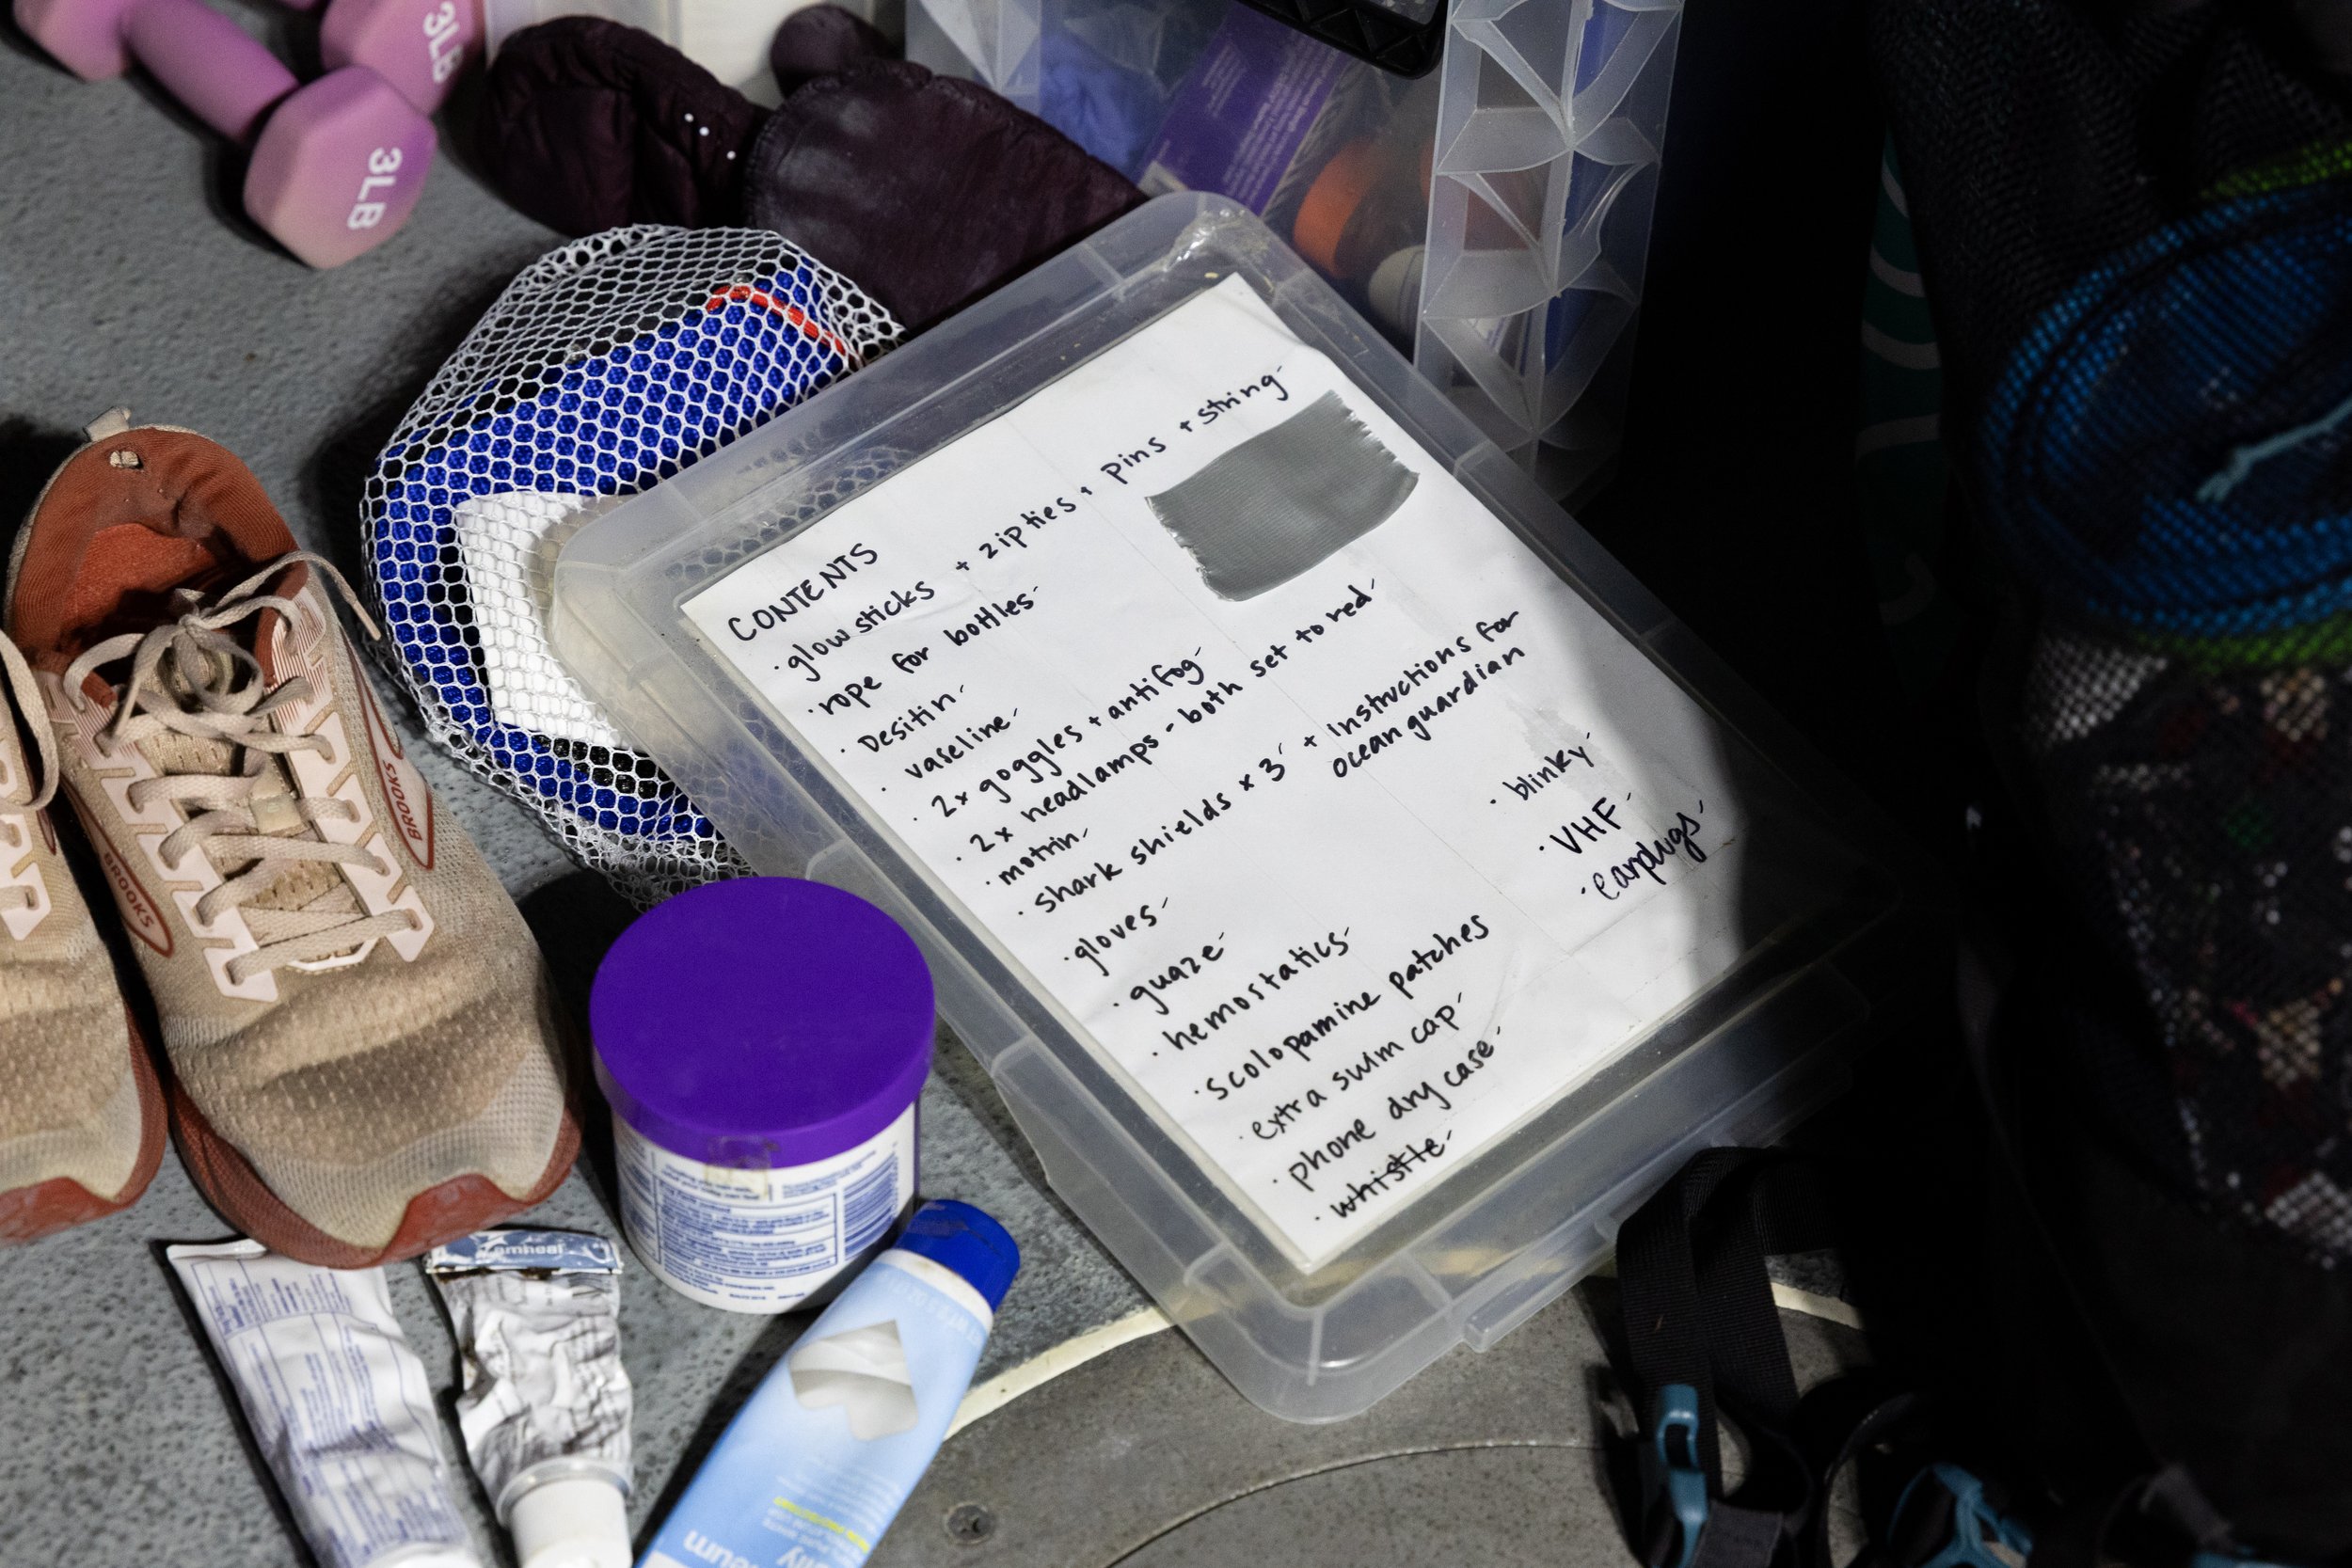 3LB
3LB
CONTENTS
· glow sticks + zip ties + pins + string
· rope for bottles
· Desitin
· vaseline
· 2x goggles + antifog
· 2x headlamps - both set to red
· motrin
· shark shields x 3 + instructions for
ocean guardian
· gloves
· guaze
· hemostatics
· scolopamine patches
· extra swim cap
· phone dry case
· whistle
· blinky
· VHF
· earplugs
BROOKS
BROOKS